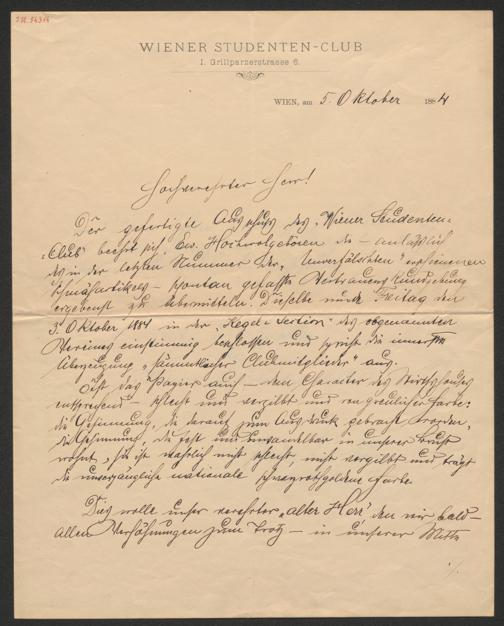 I.N. 54314
WIENER STUDENTEN-CLUB
I. Grillparzerstrasse 6.
WIEN, am 5. Oktober 1884
Hochverehrter Herr!
Der gefertigte Ausschuss des „Wiener Studenten-
Club“ beehrt sich, Euer Hochwolgeboren die – anlässlich
des in der letzten Nummer der „Unverfälschten“ erschienenen
Schmähartikels – spontan gefasste Vertrauenskundgebung
ergebenst zu übermitteln. Dieselbe wurde Freitag den
3. Oktober 1884 in der „Kegel-Section“ des obgenannten
Vereines einstimmig beschlossen und spricht die innerste
Überzeugung „sämmtlicher Clubmitglieder“ aus.
Ist das Papier auch – dem Character des Wirthshauses
entsprechend – schlecht und vergilbt und von greulicher Farbe:
die Gesinnung, die darauf zum Ausdruck gebracht worden,
die Gesinnung, die fest und unwandelbar in unserer Brust
wohnt, sie ist wahrlich nicht schlecht, nicht vergilbt und trägt
die unvergängliche nationale schwarzrothgoldene Farbe.
Dies wolle unser verehrter „alter Herr“ den wir bald –
allen zum Trotz – in unserer Mitte
./.